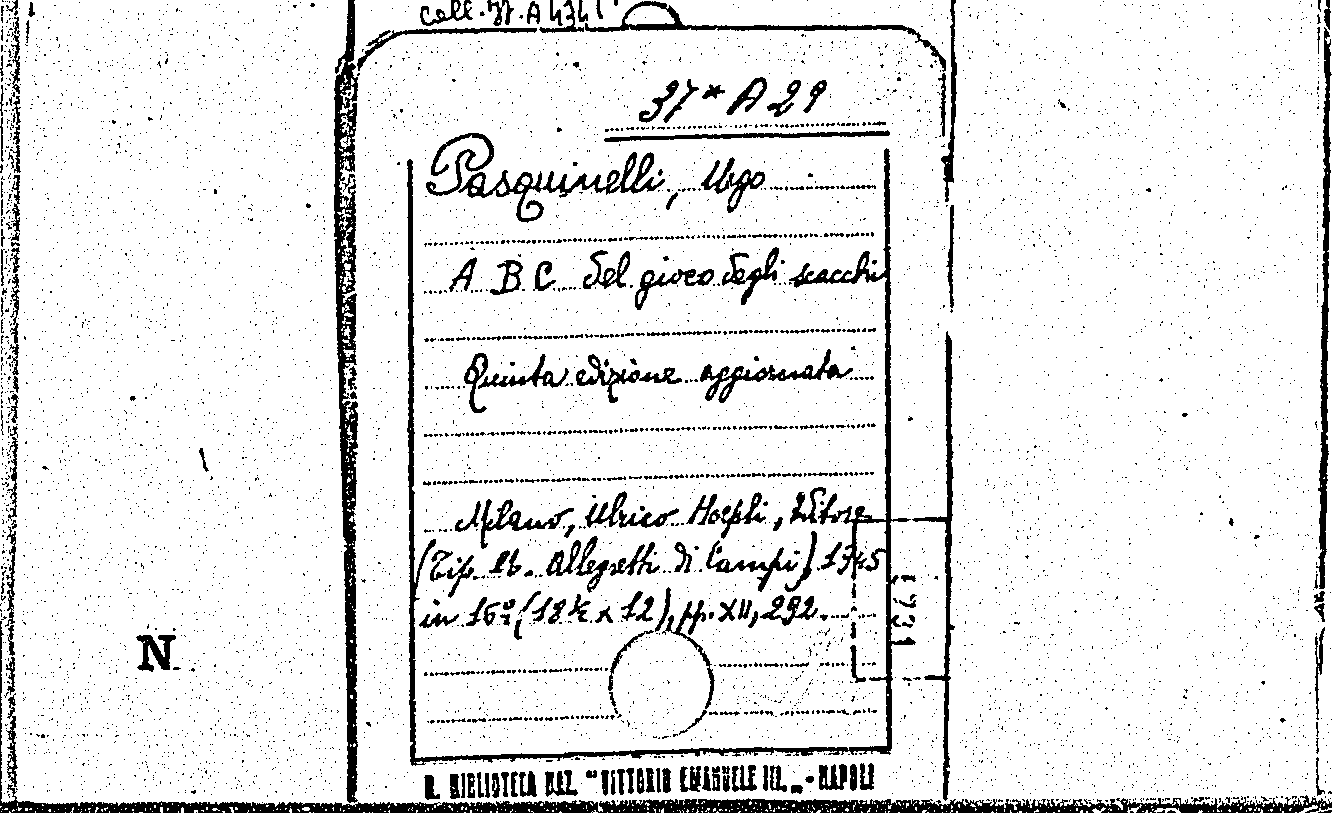 37* A 29
Pasquinelli, Ugo
A B C del gioco degli scacchi
Quinta edizione aggiornata
Milano, Ulrico Hoepli, Editore
(Tip. Allegretti di Campi) 1945
in 16º (18½ x 12), pp. XII, 292.
N
R. BIBLIOTECA NAZ. "VITTORIO EMANUELE III." - NAPOLI